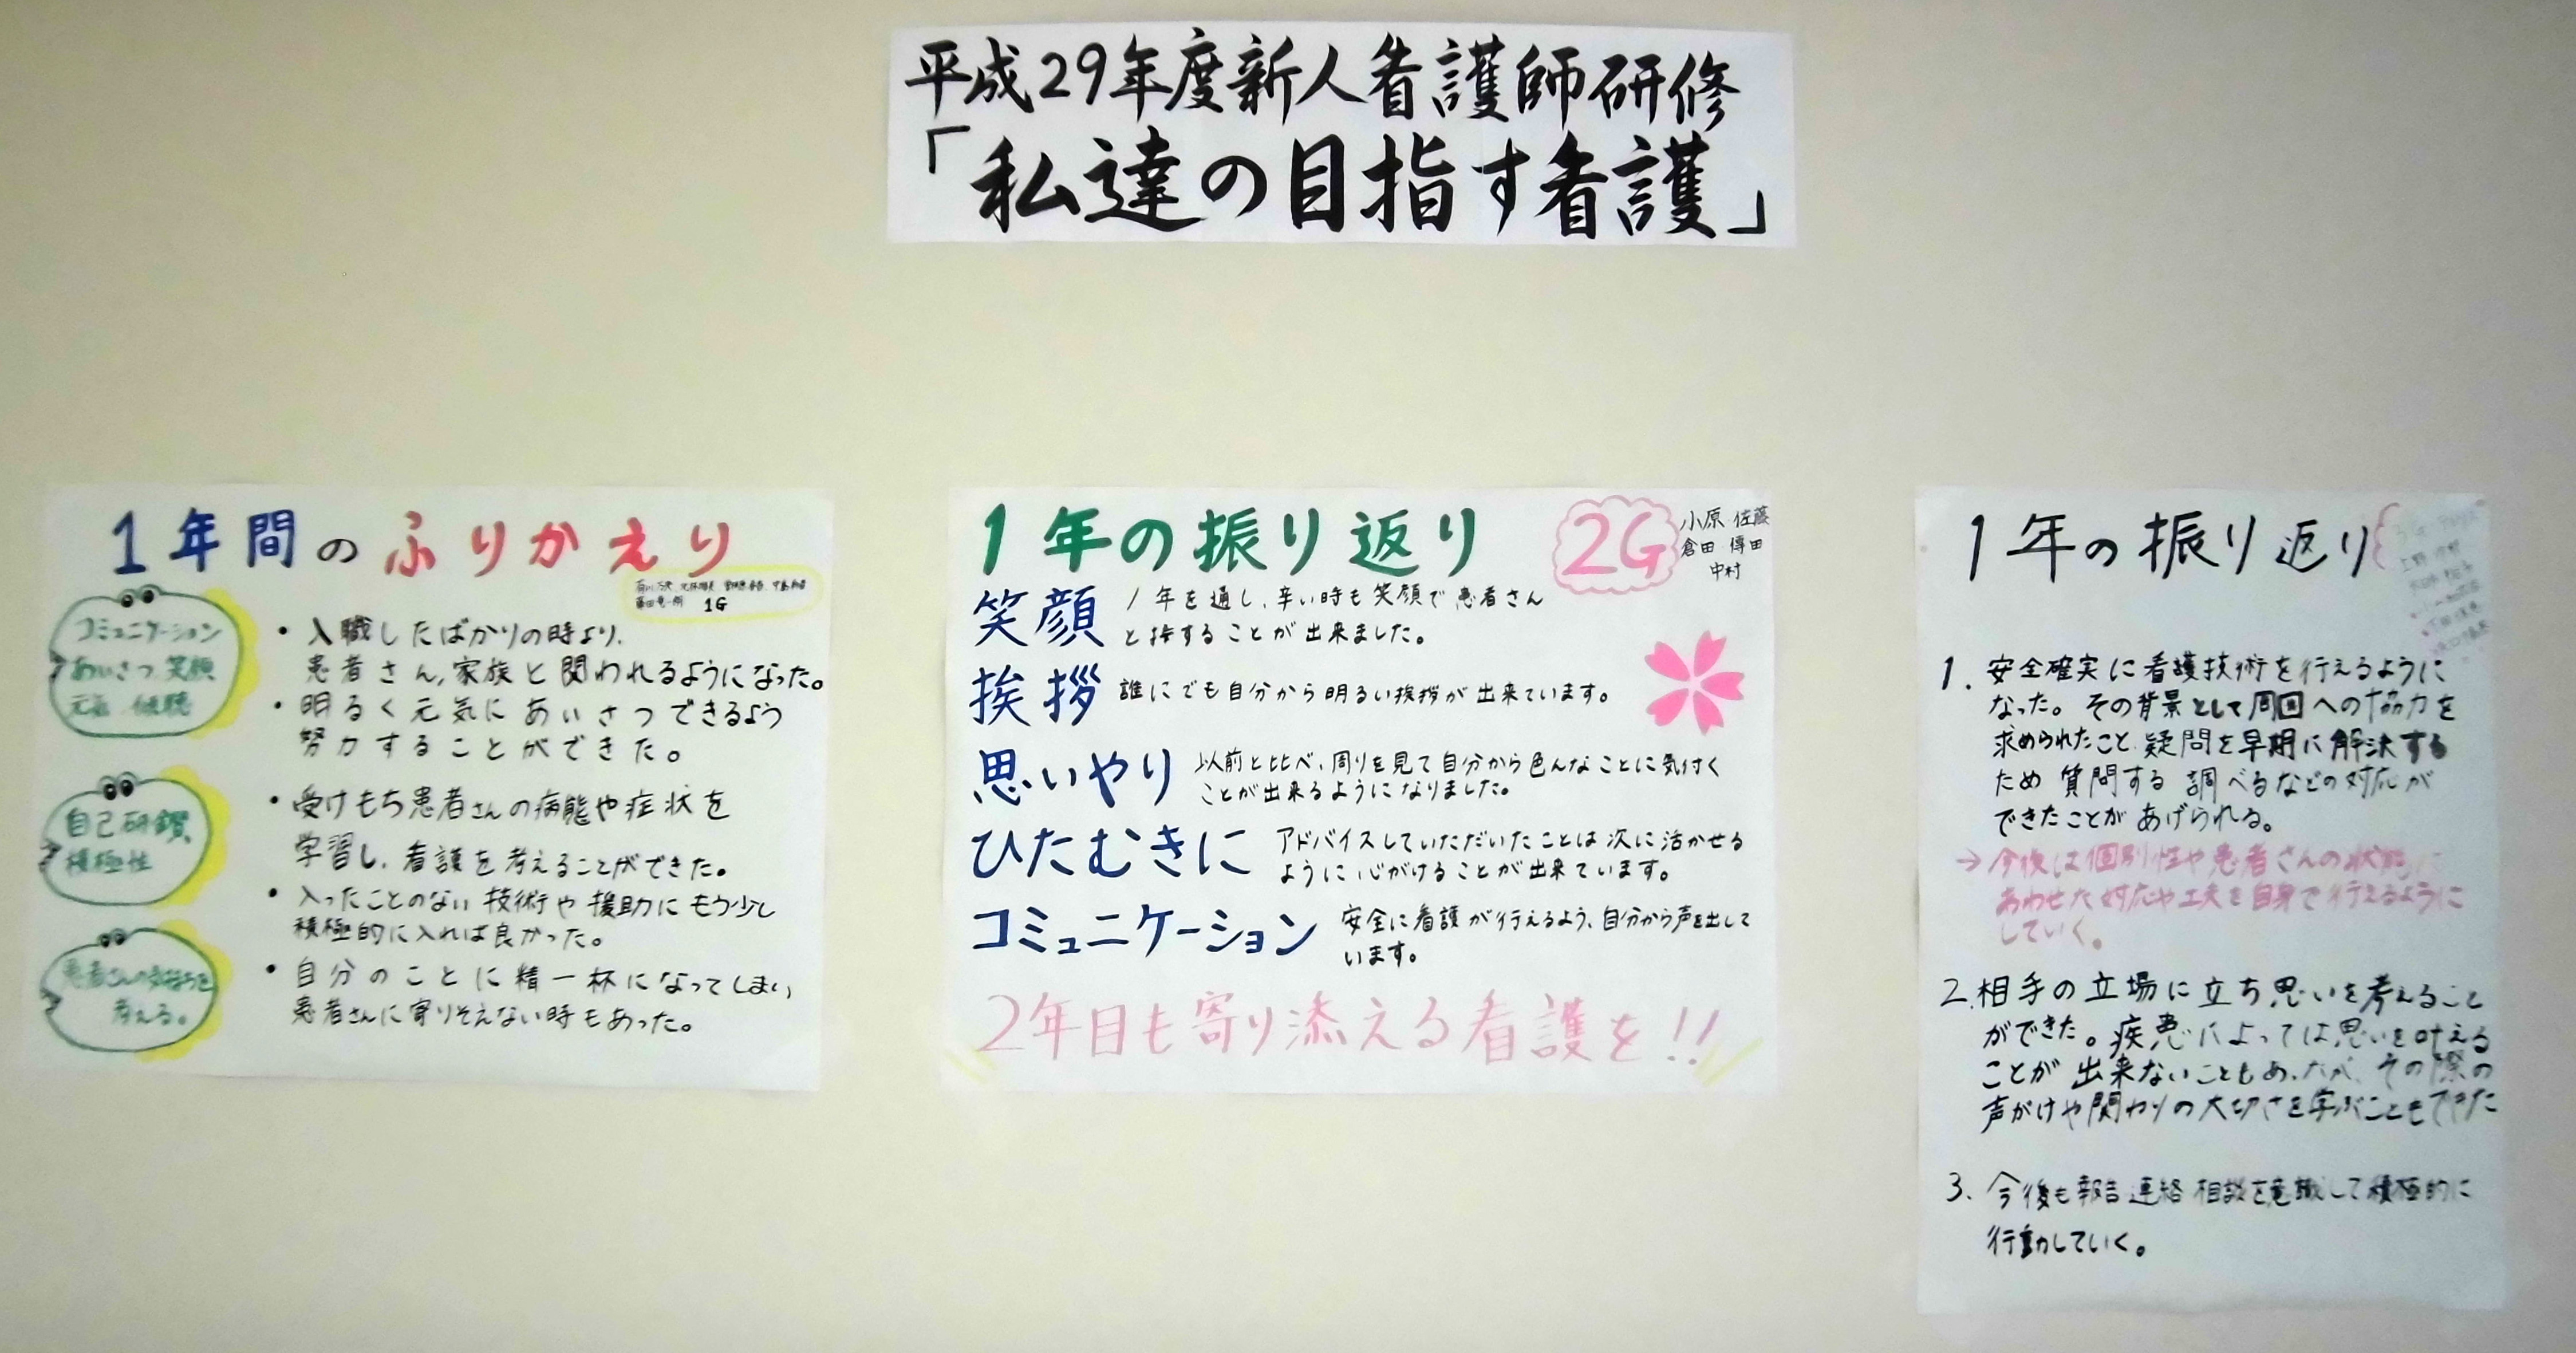 平成29年度新人看護師研修
「私達の目指す看護」
1年間のふりかえり
1G
コミュニケーション
あいさつ 笑顔
元気 傾聴
・入職したばかりの時より、
患者さん,家族と関われるようになった。
・明るく元気にあいさつできるよう
努力することができた。
自己研鑽、
積極性
・受けもち患者さんの病態や症状を
学習し、看護を考えることができた。
・入ったことのない技術や援助にもう少し
積極的に入れば良かった。
患者さんの気持ちを
考える。
・自分のことに精一杯になってしまい
患者さんに寄りそえない時もあった。
1年の振り返り
2G
小原 佐藤
倉田 傳田
中村
笑顔
1年を通し、辛い時も笑顔で患者さん
と接することが出来ました。
挨拶
誰にでも自分から明るい挨拶が出来ています。
思いやり
以前と比べ、周りを見て自分から色んなことに気付く
ことが出来るようになりました。
ひたむきに
アドバイスしていただいたことは次に活かせる
ように心がけることが出来ています。
コミュニケーション
安全に看護が行えるよう、自分から声を出して
います。
2年目も寄り添える看護を!!
1年の振り返り
1. 安全確実に看護技術を行えるように
なった。その背景として周囲への協力を
求められたこと、疑問を早期に解決する
ため 質問する 調べるなどの対応が
できたことがあげられる。
→今後は個別性や患者さんの状態に
あわせた対応や工夫を自身で行えるように
していく。
2.相手の立場に立ち思いを考えること
ができた。疾患によっては思いを叶える
ことが出来ないこともあったが、その際の
声がけや関わりの大切さを学ぶこともできた
3. 今後も報告 連絡 相談を意識して積極的に
行動していく。